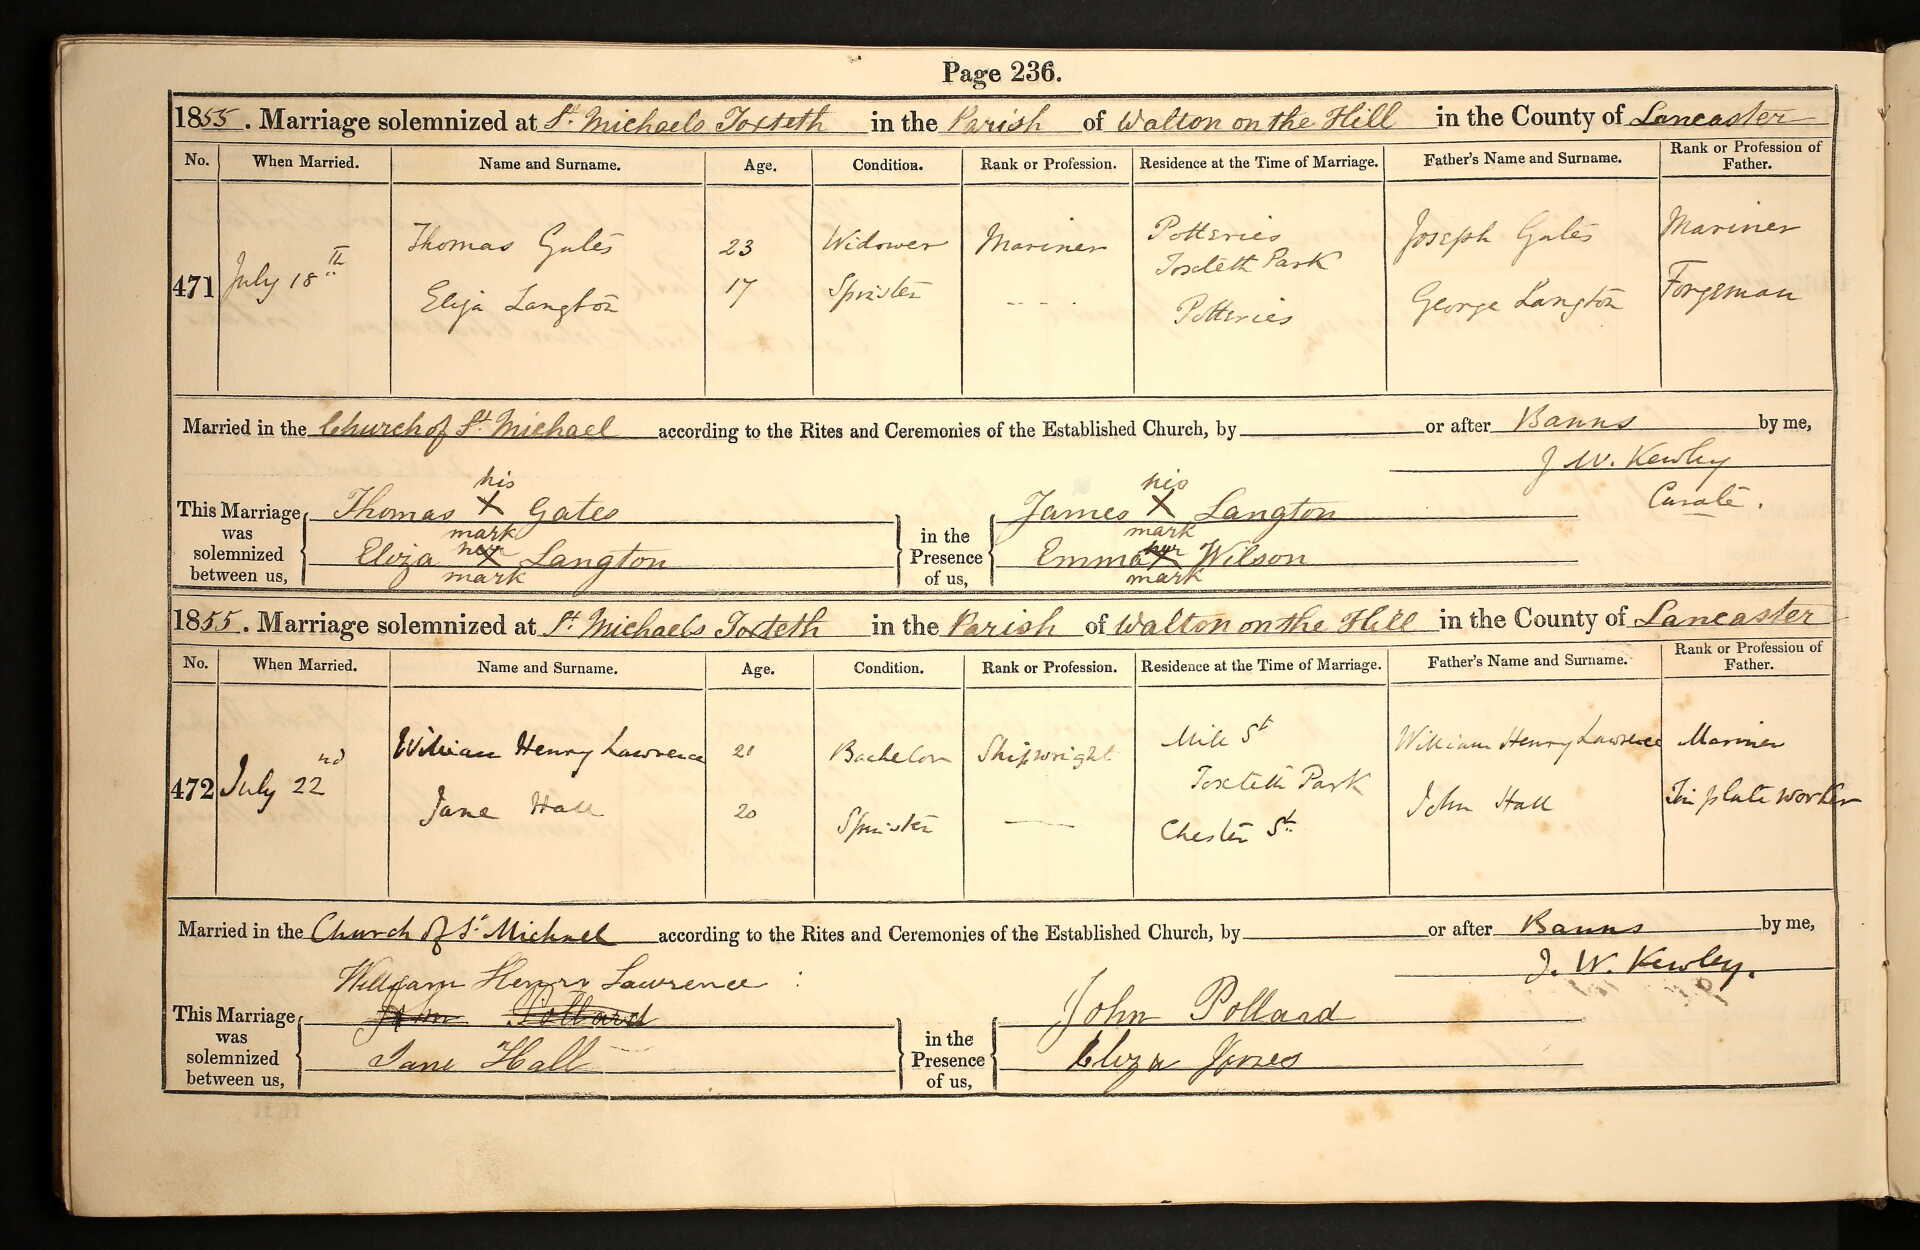 Page 236.
1855. Marriage solemnized at St. Michaels Toxteth in the Parish of Walton on the Hill in the County of Lancaster
No. When Married. Name and Surname. Age. Condition. Rank or Profession. Residence at the Time of Marriage. Father's Name and Surname. Rank or Profession of Father.
471 July 18th Thomas Gates 23 Widower Mariner Potteries Toxteth Park Joseph Gates Mariner
Eliza Langton 17 Spinster ---- Potteries George Langton Forgeman
Married in the Church of St. Michael according to the Rites and Ceremonies of the Established Church, by or after Banns by me,
J. W. Kewley
Curate.
This Marriage was solemnized between us, Thomas his X mark Gates in the Presence of us, James his X mark Langton
Eliza her X mark Langton Emma her X mark Wilson
1855. Marriage solemnized at St. Michaels Toxteth in the Parish of Walton on the Hill in the County of Lancaster
No. When Married. Name and Surname. Age. Condition. Rank or Profession. Residence at the Time of Marriage. Father's Name and Surname. Rank or Profession of Father.
472 July 22nd William Henry Lawrence 21 Bachelor Shipwright Mill St Toxteth Park William Henry Lawrence Mariner
Jane Hall 20 Spinster — Chester St. John Hall Tin plate worker
Married in the Church of St. Michael according to the Rites and Ceremonies of the Established Church, by or after Banns by me,
J. W. Kewley.
William Henry Lawrence
This Marriage was solemnized between us, John Pollard in the Presence of us, John Pollard
Jane Hall Eliza Jones